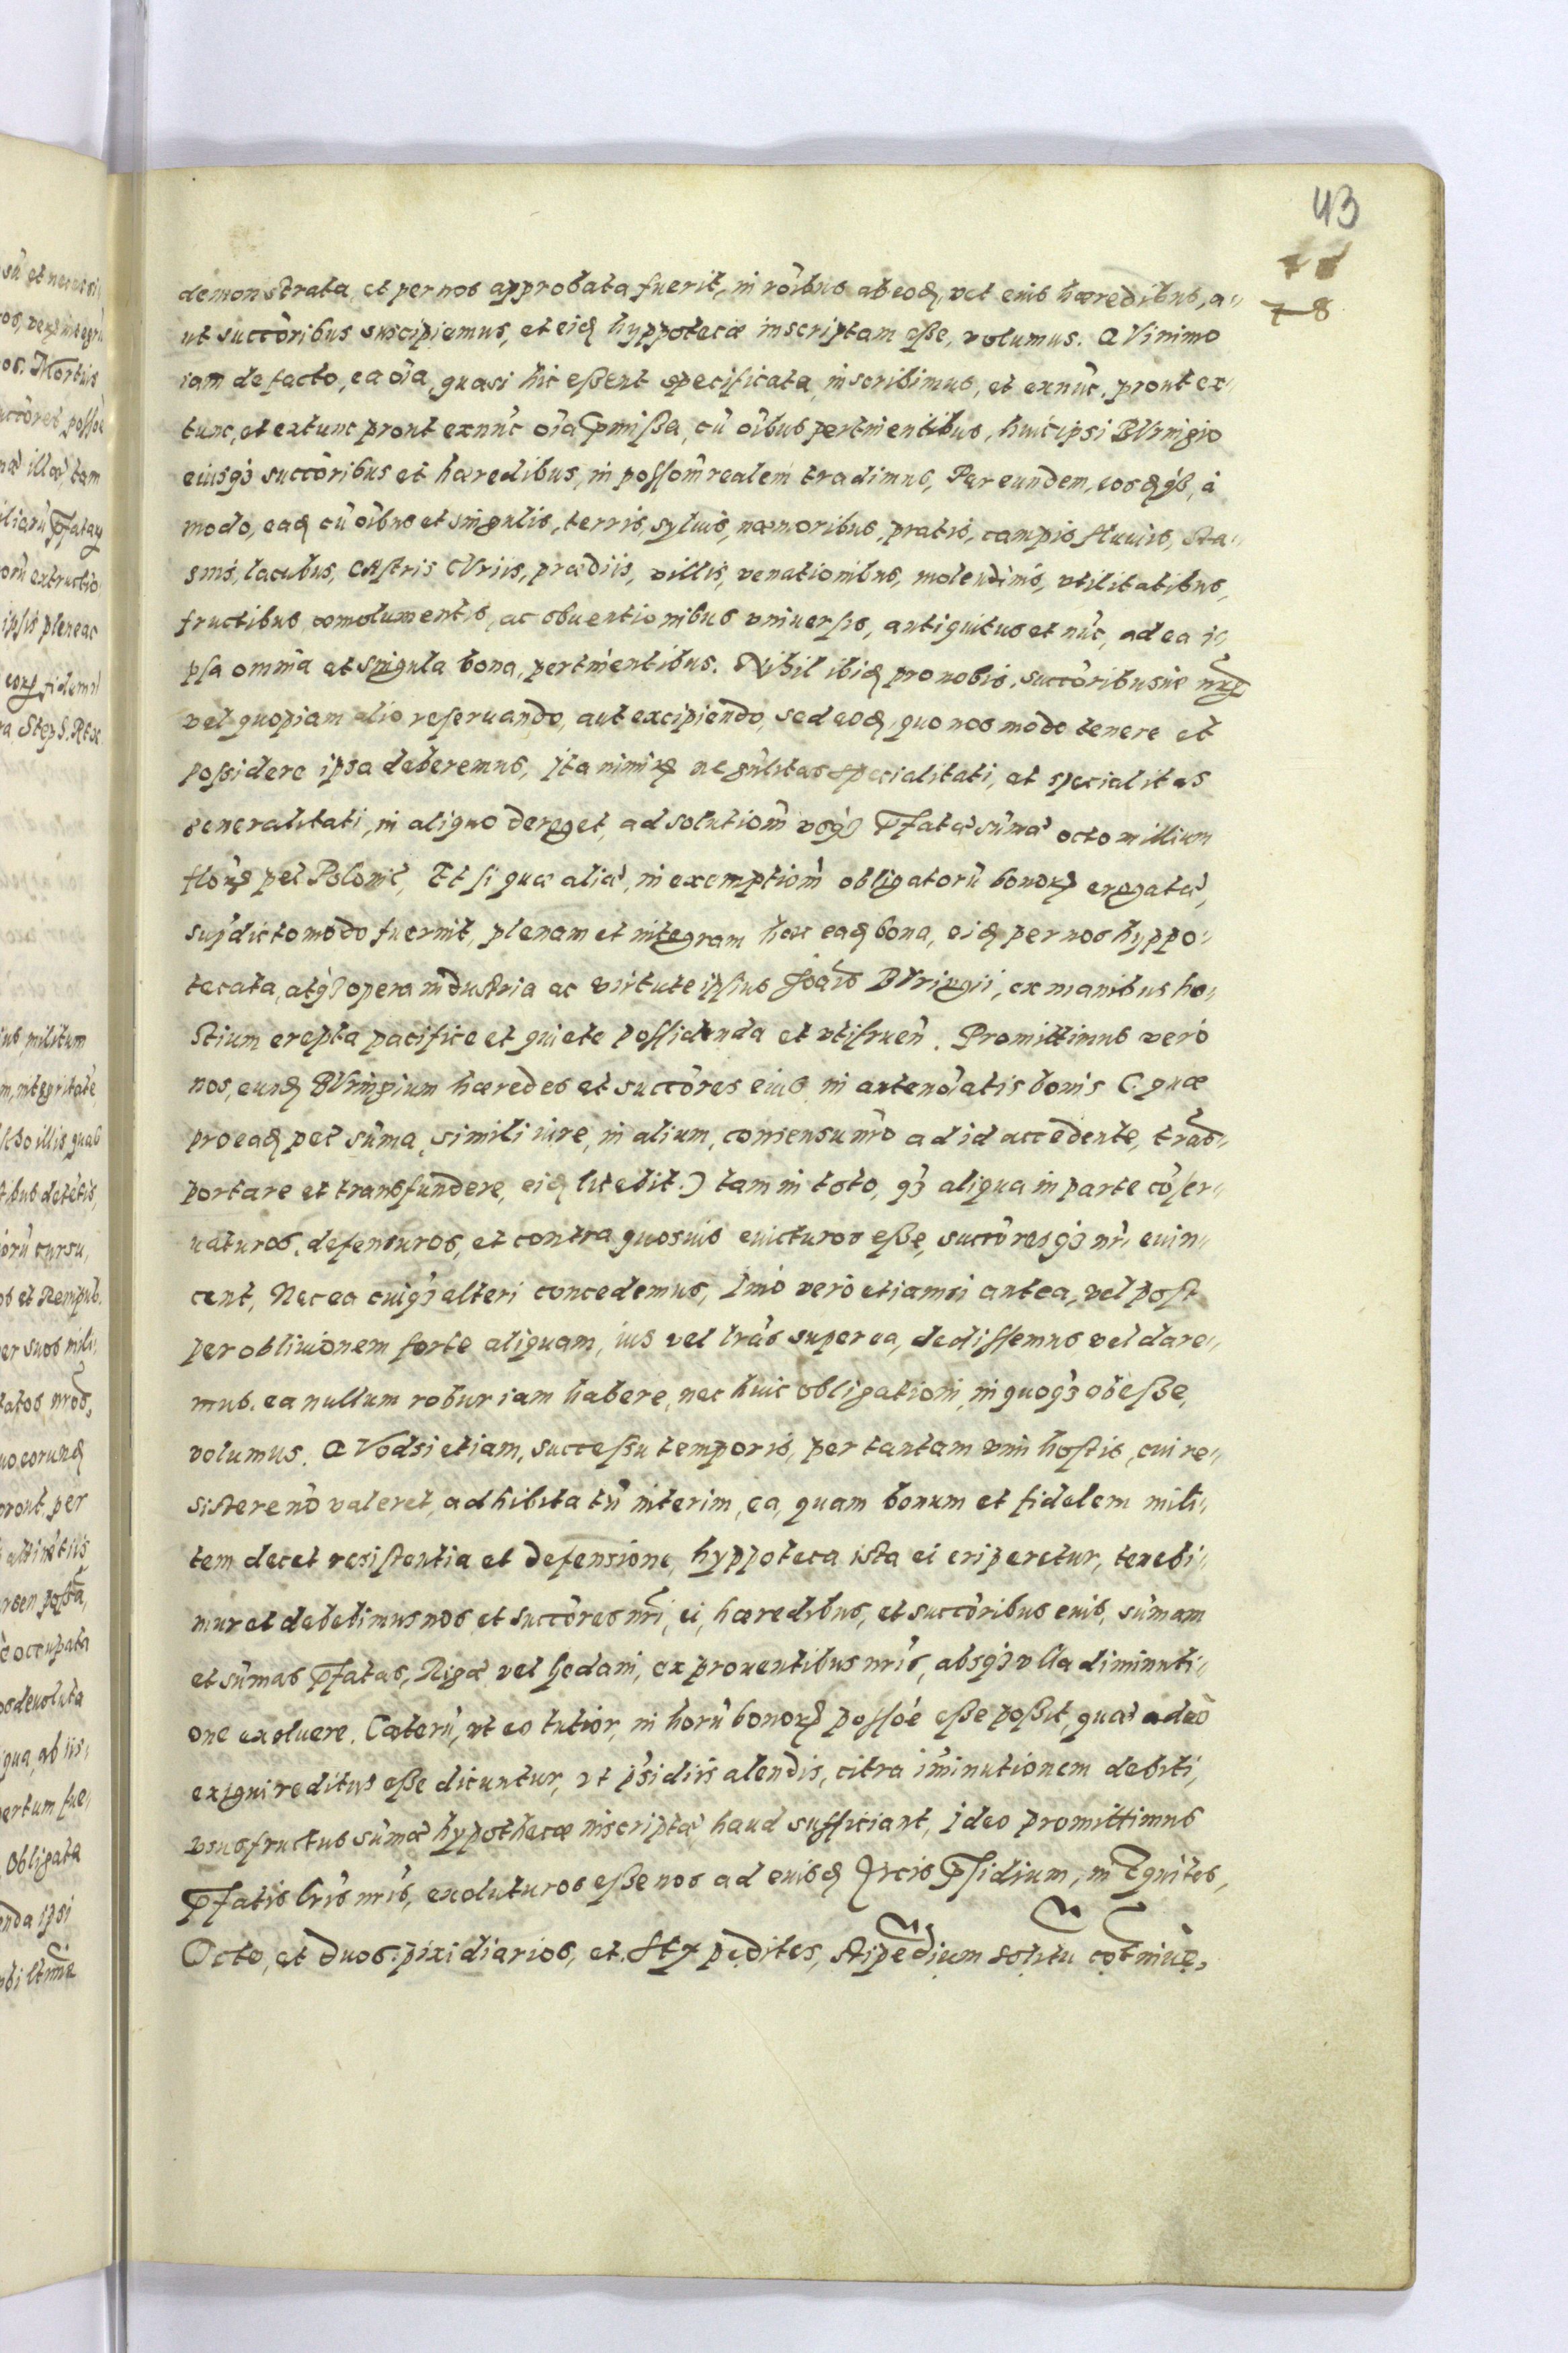 43
78
demonstrata, et per nos approbata fuerit, in rôibus ab eodꝫ, vel eius hæredibus, a-
ut succôribus suscipiemus, et eidꝫ hyppotecæ inscriptam eße, volumus. QVinimo
iam de facto, ea oîa, quasi hic eßent specificata, inscribimus, et exnûc, prout ex-
tunc, et extunc prout exnûc oîa p̄mißa, cû oîbus pertinentibus, huic ipsi BVringio
eiusqꝫ succôribus et hæredibus, in poſſom̂ realem tradimus, Per eundem, eosdꝫqꝫ, à
modo, eadꝫ cû oîbus et singulis, terris, syluis, næmoribus, pratis, campis fluuiis, sta-
gnis, lacubus, CAstris CVriis, prædiis, villis, venationibus, molendinis, vtilitatibus,
fructibus, emolumentis, ac obuentionibus vniuerſis, antiquitus et nûc, ad ea i-
pſa omnia et singula bona, pertinentibus. Nihil ibidꝫ pro nobis, succôribusue nr̄oꝝ
vel quopiam alio reſeruando, aut excipiendo, sed eodꝫ, quo nos modo tenere et
poßidere ipsa deberemus, Ita nimiꝝ ne gn̂litas specialitati, et specialitas
generalitati, in aliquo deroget, ad solutiom̂ vsqꝫ p̄fatæ sûmæ octo millium
floꝝ pel Polonic̄, Et ſi quæ aliæ, in exemptiom̂ obligatorû bonoꝝ erogatæ,
sup̄dicto modo fuerint, plenam et integram hæc eadꝫ bona, eidꝫ per nos hyppo-
tecata, atqꝫ opera industria ac virtute ipſius Joāis BVringii, ex manibus ho-
stium erepta pacifice et quiete poſſidenda et vtifruen̂. Promittimus verò
nos, eundꝫ BVringium hæredes et succôres eius, in antenôiatis bonis (: quæ
pro eadꝫ pec̄ sûma, simili iure, in alium, consensu nr̂o ad id accedente, trâs-
portare et transfundere, eidꝫ licebit :) tam in toto, qꝫ aliqua in parte côſer-
uaturos, defensuros, et contra quosuis euicturos eße, succôresqꝫ nr̂i euin-
cent, Nec ea cuiqꝫ alteri concedemus, Imò verò etiamsi antea, vel poſt
per obliuionem forte aliquam, ius vel lr̂as super ea, dediſſemus vel dare-
mus, ea nullum robur iam habere, nec huic obligationi, in quoqꝫ obeße,
volumus. QVodsi etiam, succeßu temporis, per tantam vim hoſtis, cui re-
sistere nô valeret, adhibita tn̂ interim, ea, quam bonum et fidelem mili-
tem decet resiſtentia et defensione, hyppoteca ista ei eriperetur, tenebi-
mur et debebimus nos, et succôres nr̂i, ei, hæredibus, et succôribus eius, sûmam
et sûmas p̄fatas, Rigæ vel Gedani, ex prouentibus nr̂is, absqꝫ vlla diminuti-
one exoluere. Cæterû, vt eo tutior, in horû bonoꝝ poſſôe eße poßit, quæ adeò
exigui reditus eße dicuntur, vt p̂sidiis alendis, citra im̂inutionem debiti,
vsusfructus sûmæ hypothecæ inscriptæ haud sufficiant, Ideo promittimus
p̄fatis lr̂is nr̂is, exoluturos eße nos ad eiusdꝫ Arcis p̄sidium, in Equites,
Octo, et duos pixidiarios, et pedites, stipêdium solitû côtinuè,